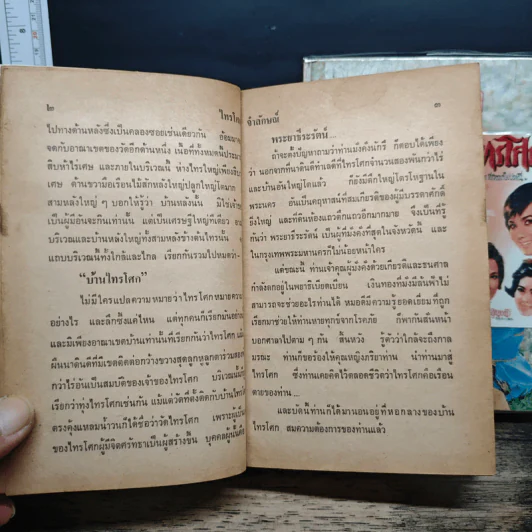 ๒
ไทรโศก
ไปทางด้านหลังซึ่งเป็นคลองซอยเช่นเดียวกัน
จดกับอาณาเขตของวัดอีกด้านหนึ่ง เนื้อที่ทั้งหมดมีประมาณ
สิบห้าไร่เศษ และภายในบริเวณนี้ ห่างไทรใหญ่เพียง
เศษ ด้านขวามือเรือนไม้สักหลังใหญ่ปลูกใหญ่โตมาก
สามหลังใหญ่ ๆ บอกให้รู้ว่า บ้านหลังนั้น มิใช่
เป็นผู้มีอันจะกินเท่านั้น แต่เป็นเศรษฐีใหญ่ทีเดียว
บริเวณและบ้านหลังใหญ่ทั้งสามหลังข้างต้นไทรนั้น
แถบบริเวณทั้งใกล้และไกล เรียกกันรวมไปหมดว่า-
“บ้านไทรโศก”
ไม่มีใครแปลความหมายว่าไทรโศกหมายความ
อย่างไร และลึกซึ้งแค่ไหน แต่ทุกคนก็เรียกมันอย่าง
และมิเพียงอาณาเขตบ้านเท่านั้นที่เรียกกันว่าไทรโศก
ผืนนาดินดีที่มีเขตติดต่อกว้างขวางสุดลูกหูลูกตา
กว่าไร่อันเป็นสมบัติของเจ้าของไทรโศก บริเวณนั้น
เรียกว่าทุ่งไทรโศกเช่นกัน แม้แต่วัดที่ตั้งติดกับบ้าน
ตรงคุ้งแหลมน้ำวนก็ได้ชื่อว่าวัดไทรโศก เพราะผู้เป็น
ของไทรโศกผู้มีจิตศรัทธาเป็นผู้สร้างขึ้น บุคคลผู้นั้นคือ
จำลักษณ์
๓
พระยาธีระรัตน์ ...
ถ้าจะตั้งปัญหาถามว่าท่านมั่งคั่งนักรึ ก็ตอบได้เพียง
ว่า นอกจากที่นาดินดีทำเลดีที่ไทรโศกจำนวนสองพันกว่าไร่
และบ้านอันใหญ่โตแล้ว ก็ยังมีตึกใหญ่โตรโหฐานใน
พระนคร อันเป็นคฤหาสน์ที่สมเกียรติของผู้มีบรรดาศักดิ์
ยิ่งใหญ่ และที่ดินห้องแถวตึกแถวอีกมากมาย จึงเป็นที่รู้
กันว่า พระยาธีระรัตน์ เป็นผู้ที่มั่งคั่งที่สุดในจังหวัดนั้น และ
ในกรุงเทพพระมหานครก็ไม่น้อยหน้าใคร
แต่ขณะนี้ ท่านเจ้าคุณผู้มั่งคั่งด้วยเกียรติและธนศาล
กำลังตกอยู่ในพยาธิเบียดเบียน เงินทองที่มีมิล้นฟ้าไม่
สามารถจะช่วยอะไรท่านได้ หมอดีมีความรู้ยอดเยี่ยมที่ถูก
เรียกมาช่วยให้ท่านหายทุกข์จากโรคภัย ก็พากันสั่นหน้า
บอกศาลาไปตาม ๆ กัน สิ้นหวัง รู้ตัวว่าใกล้จะถึงกาล
มรณะ ท่านก็ขอร้องให้คุณหญิงภริยาท่าน นำท่านมาสู่
ไทรโศก ซึ่งท่านเคยคิดไว้ตลอดชีวิตว่าไทรโศกคือเรือน
ตายของท่าน ...
และบัดนี้ท่านก็ได้มานอนอยู่ที่หอกลางของบ้าน
ไทรโศก สมความต้องการของท่านแล้ว